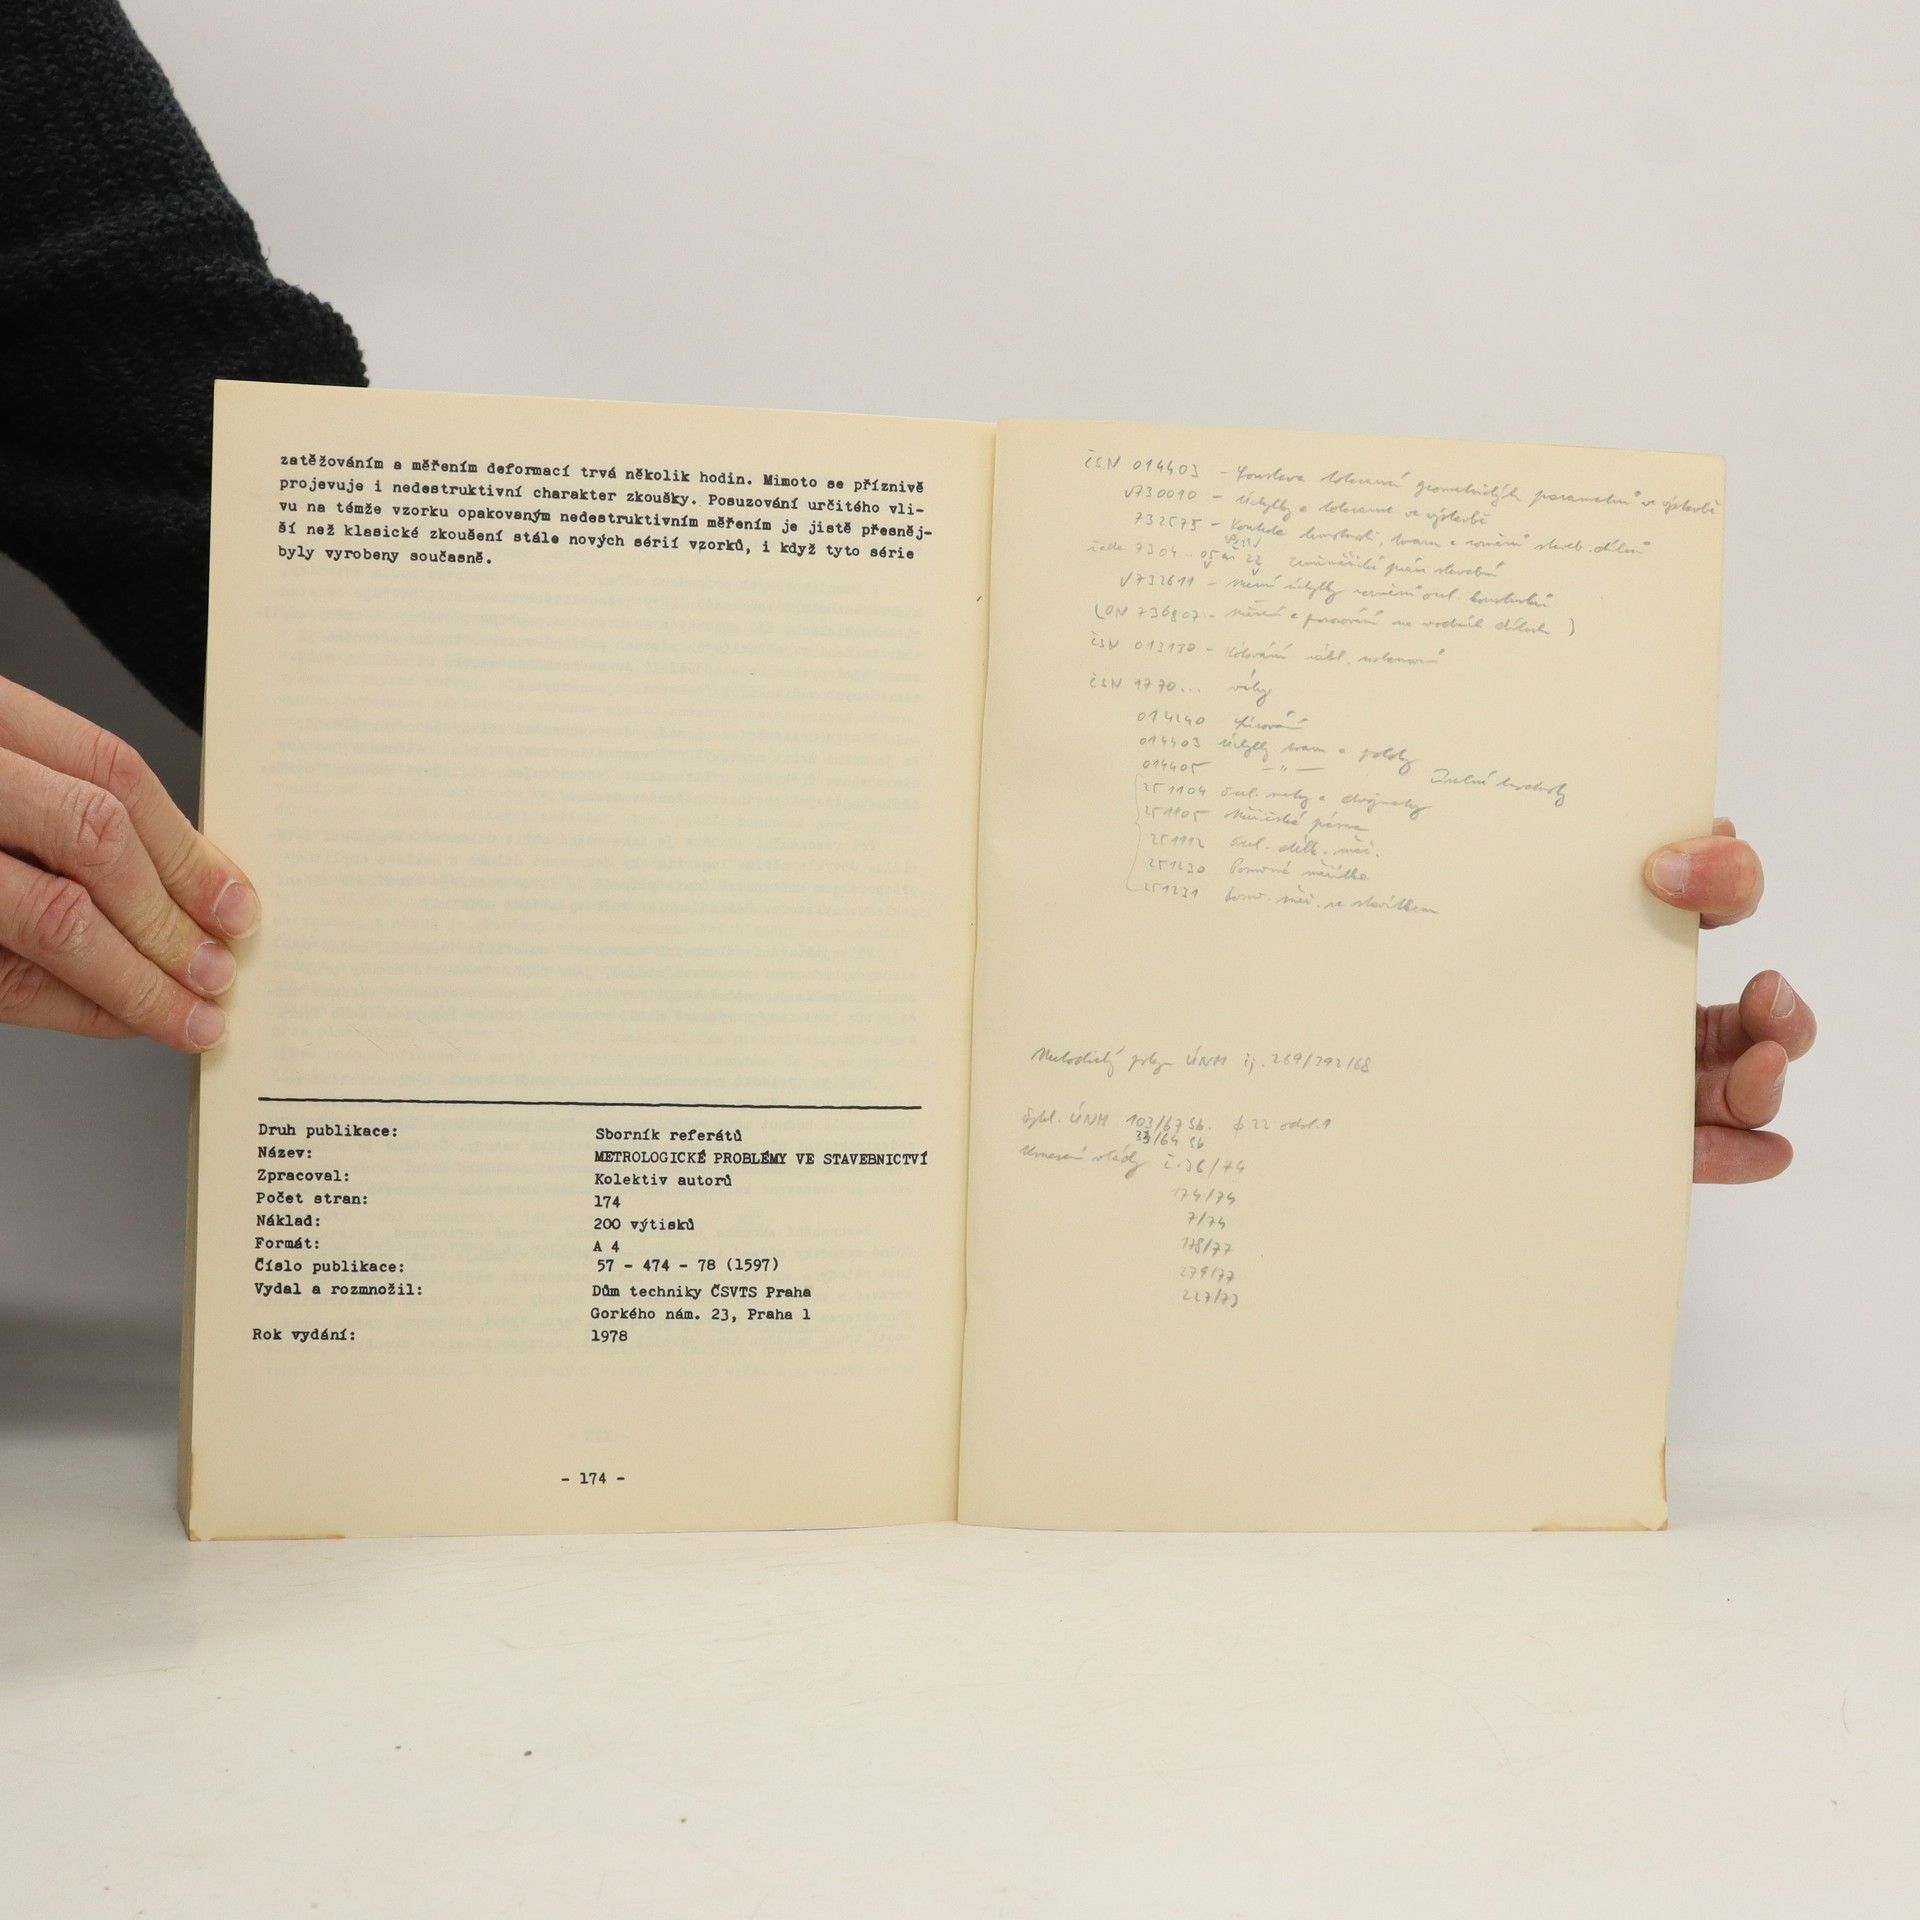 zatěžováním a měřením deformací trvá několik hodin. Mimoto se příznivě
projevuje i nedestruktivní charakter zkoušky. Posuzování určitého vli-
vu na témže vzorku opakovaným nedestruktivním měřením je jistě přesněj-
ší než klasické zkoušení stále nových sérií vzorků, i když tyto série
byly vyrobeny současně.
Druh publikace: Sborník referátů
Název: METROLOGICKÉ PROBLÉMY VE STAVEBNICTVÍ
Zpracoval: Kolektiv autorů
Počet stran: 174
Náklad: 200 výtisků
Formát: A 4
Číslo publikace: 57 - 474 - 78 (1597)
Vydal a rozmnožil: Dům techniky ČSVTS Praha
Gorkého nám. 23, Praha 1
Rok vydání: 1978
- 174 -
ČSN 014403 - Soustava tolerancí geometrických parametrů ve výstavbě
730010 - Úchylky a tolerance ve výstavbě
732575 - Kontrola
732611 - úchylky
(ON 736807 - Měření a pozorování na vodních dílech)
ČSN 013130 - Kótování
ČSN 1770... váhy
014240 Lícování
014403 úchylky tvaru a polohy
014405 - " -
251104
251105 Měřičská pásma
251112
251230
251231
Metodický pokyn ÚNM čj. 269/392/68
ÚNM 103/67 Sb. odst. 1
/64 Sb
Usnesení vlády č. 36/74
174/74
7/74
178/77
279/77
227/73